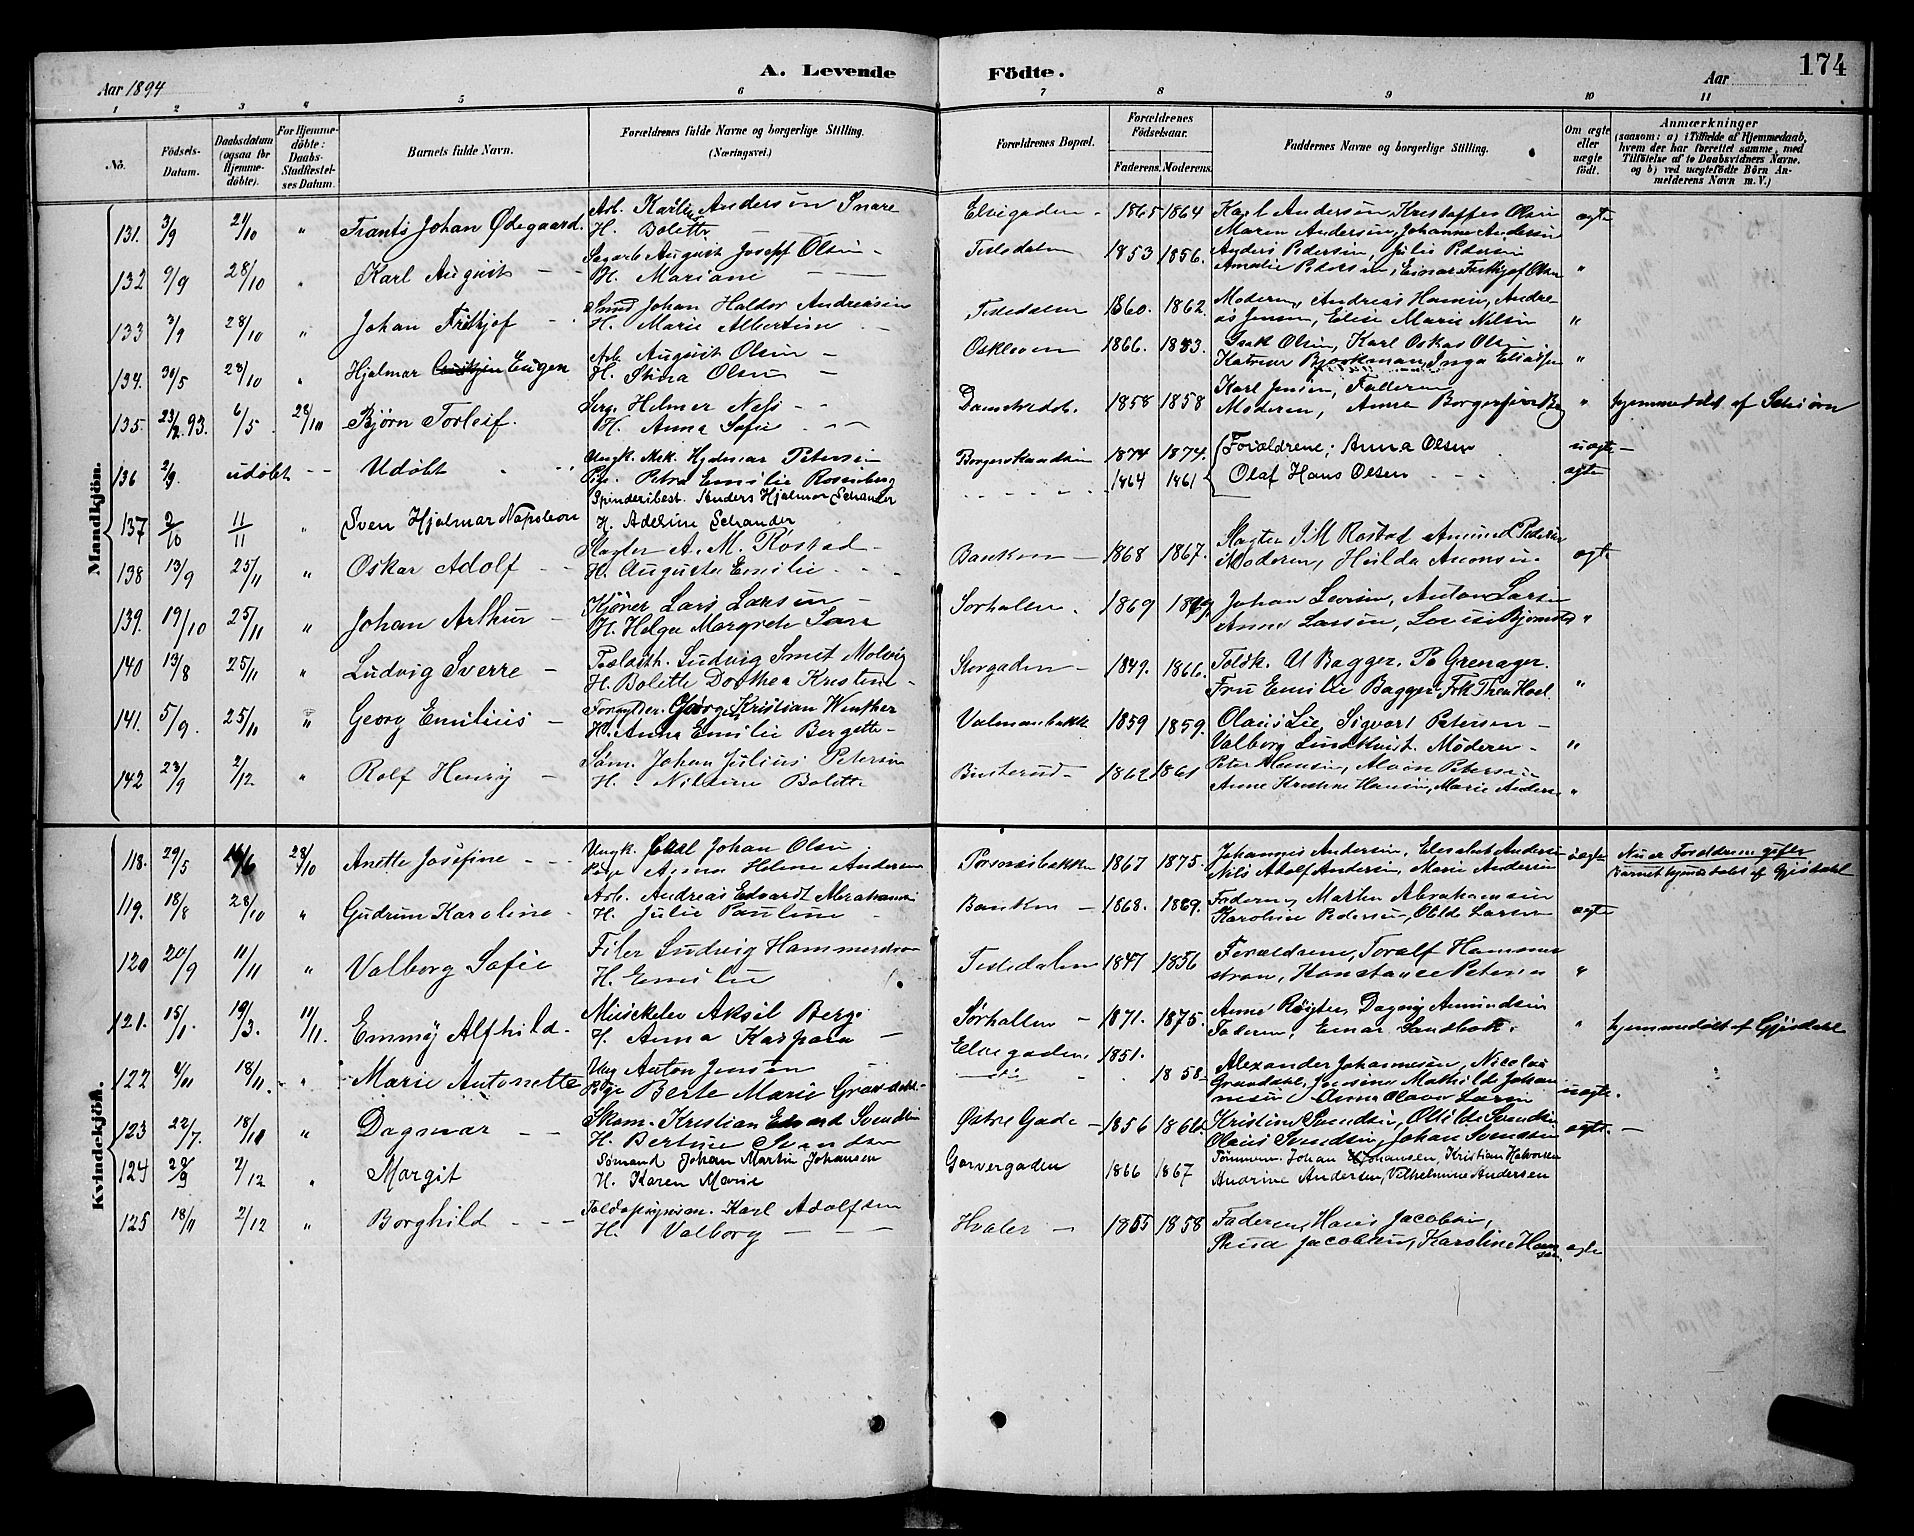 A. Levende Födte.
174
Aar 1894
Aar
1 2 3 4 5 6 7 8 9 10 11
No.
Födsels-Datum.
Daabsdatum (ogsaa for Hjemme-döbte).
For Hjemme-döbte: Daabs-Stadfæstel-ses Datum.
Barnets fulde Navn.
Forældrenes fulde Navne og borgerlige Stilling. (Næringsvei.)
Forældrenes Bopæl.
Forældrenes Födselsaar.
Faderens. Moderens.
Faddernes Navne og borgerlige Stilling.
Om ægte eller uægte födt.
Anmærkninger (saasom: a) i Tilfælde af Hjemmedaab, hvem der har forrettet samme, med Tilföielse af to Daabsvidners Navne. og b) ved uægtefödte Börn An-melderens Navn m. V.)
Mandkjön.
131. 3/9 21/10 " Frants Johan Ødegaard. Arb. Andersen Snare
H. Bolette
Elvegaden - 1865 1864 Karl Andersen, Kristoffer Olsen
Maren Andersen, Johanne Andersen ægte
132 9/9 28/10 " Karl August - - Sagarb August Josepf Olsen -
H. Mariane - -
Tistedalen 1853 1856. Anders Pedersen, Julie Pedersen
Amalie Pedersen, Einar Fritjof Olsen "
133 3/9 28/10 " Johan Fritjof - Smed Johan Haldor Andreasen
H. Marie Albertine -
Tistedalen 1860. 1862. Moderen, Andreas Hansen, Andre-
as Jensen, Elise Marie Nilsen "
134. 30/5 28/10 " Hjalmar Eugen Arb. August Olsen -
H. Stina Olsen -
1866. 1883. Isak Olsen, Karl Oskar Olsen.
Katrine Bjørkman, Inga Eliassen "
135. 23/2.93. 6/5 28/10 Bjørn Torleif. Serg. Helmer Næss - -
H. Anna Sofie - -
Damstredet. 1858 1858 Karl Jensen, Fadderen
Moderen, Anna Borgersen " hjemmedøbt af
136 2/9 udøbt - - Udøbt Ungk. Mek. Hjalmar Petersen
Pige. Petra Emilie Rosenberg
1874 1874. Forældrene; Anna Olsen uægte -
137 2/10 11/11 " Sven Hjalmar Napoleon Spinderibest. Anders Hjalmar Schander
H. Adeline Schander
1864 1861 Olaf Hans Olsen - - ægte
138 13/9 25/11 " Oskar Adolf - - Slagter A. M. Rostad -
H. Augusta Emilie - -
Banken - 1868 1867. Slagter J. M Rostad Amund Pedersen
Moderen, Hilda Amonsen. ægte
139. 19/10 25/11 " Johan Arthur - Kjører Lars Larsen -
H. Helga Margrete Sara
Sørhalen. 1869 Johan Larsen, Anton Larsen
Anne Larsen, Lovise "
140 13/8 25/11 " Ludvig Sverre - Ludvig Smit Molvig
H. Bolette Dorthea Kristine -
Storgaden - 1849. 1866. Toldk. U Bagger. Po Grenager.
Fru Emilie Bagger, Frk Thea Hoel. "
141. 5/9. 25/11 " Georg Emilius - Forgylder. Georg Kristian Winther
H. Anna Emilie Bergette -
Valmansbakk 1859 1859. Olaus Lie, Sigvart Petersen -
Valborg Lundkvist. Moderen - "
142 23/9 2/12 " Rolf Henry - Søm. Johan Julius Petersen
H. - Nilsine Bolette
Busterud - 1862 1861 Peter Hansen, Petersen
Anne Kristine Hansen, Marie Andersen "
Kvindekjön.
118. 29/5 28/10 Anette Josefine - - - Ungk. Carl Johan Olsen
Pige Agnes Helene Andersen
1867 1875. Johannes Andersen, Elisabet Andersen
Nils Adolf Andersen, Marie Andersen uægte Nu er Forældrene gifte
Barnet hjemmedøbt af Gjerdahl
119. 18/8 28/10 " Gudrun Karoline. Arb. Andreas Edvardt Abrahamsen
H. Julie Pauline -
Banken - 1868. 1869. Faderen, Martin Abrahamsen
Karoline Pedersen, Larsen ægte
120 20/9 11/11 " Valborg Sofie Filer Ludvig Hammerstrøm
H. Emilie
Tistedalen 1847 1856 Forældrene, Toralf Hammer
strøm, Konstance Petersen "
121. 15/1. 19/3. 11/11. Emmy Alfhild. Aksel Berg
H. Anna Kaspara -
Sørhallen - 1871. 1875. Anne Røigter, Dagny Amundsen
Faderen, Einar Sandbek. " hjemmedøbt af Gjerdahl
122 4/11 18/11. " Marie Antonette Ung Anton Jensen -
Pige Berte Marie Grandahl
Elvegaden, 1851. 1858 Alexander Johannesen, Nicolai
Grandahl, Josefine Mathilde Johan
nesen, Anna Olava Larsen uægte.
123 22/7. 18/11 " Dagmar - - Skom. Kristian Edvard Svendsen
H. Bertine Svendsen
Østre Gade - 1856 1866. Kristine Svendsen, Otilde Svendsen
Olaus Svendsen, Johan Svendsen ægte. -
124 29/9 2/12 " Margit Sømand Johan Martin Johansen
H. Karen Marie
Garvergaden 1866 1867 Tømmerm. Johan Johansen, Kristian Halvorsen
Andrine Andersen, Vilhelmine Andersen
125 18/11 2/12 " Borghild - - - Karl Adolfsen
H. Valborg - -
Hvaler - 1855 1858 Faderen, Hans Jacobsen,
Jacobsen, Karoline Han
sen. ægte